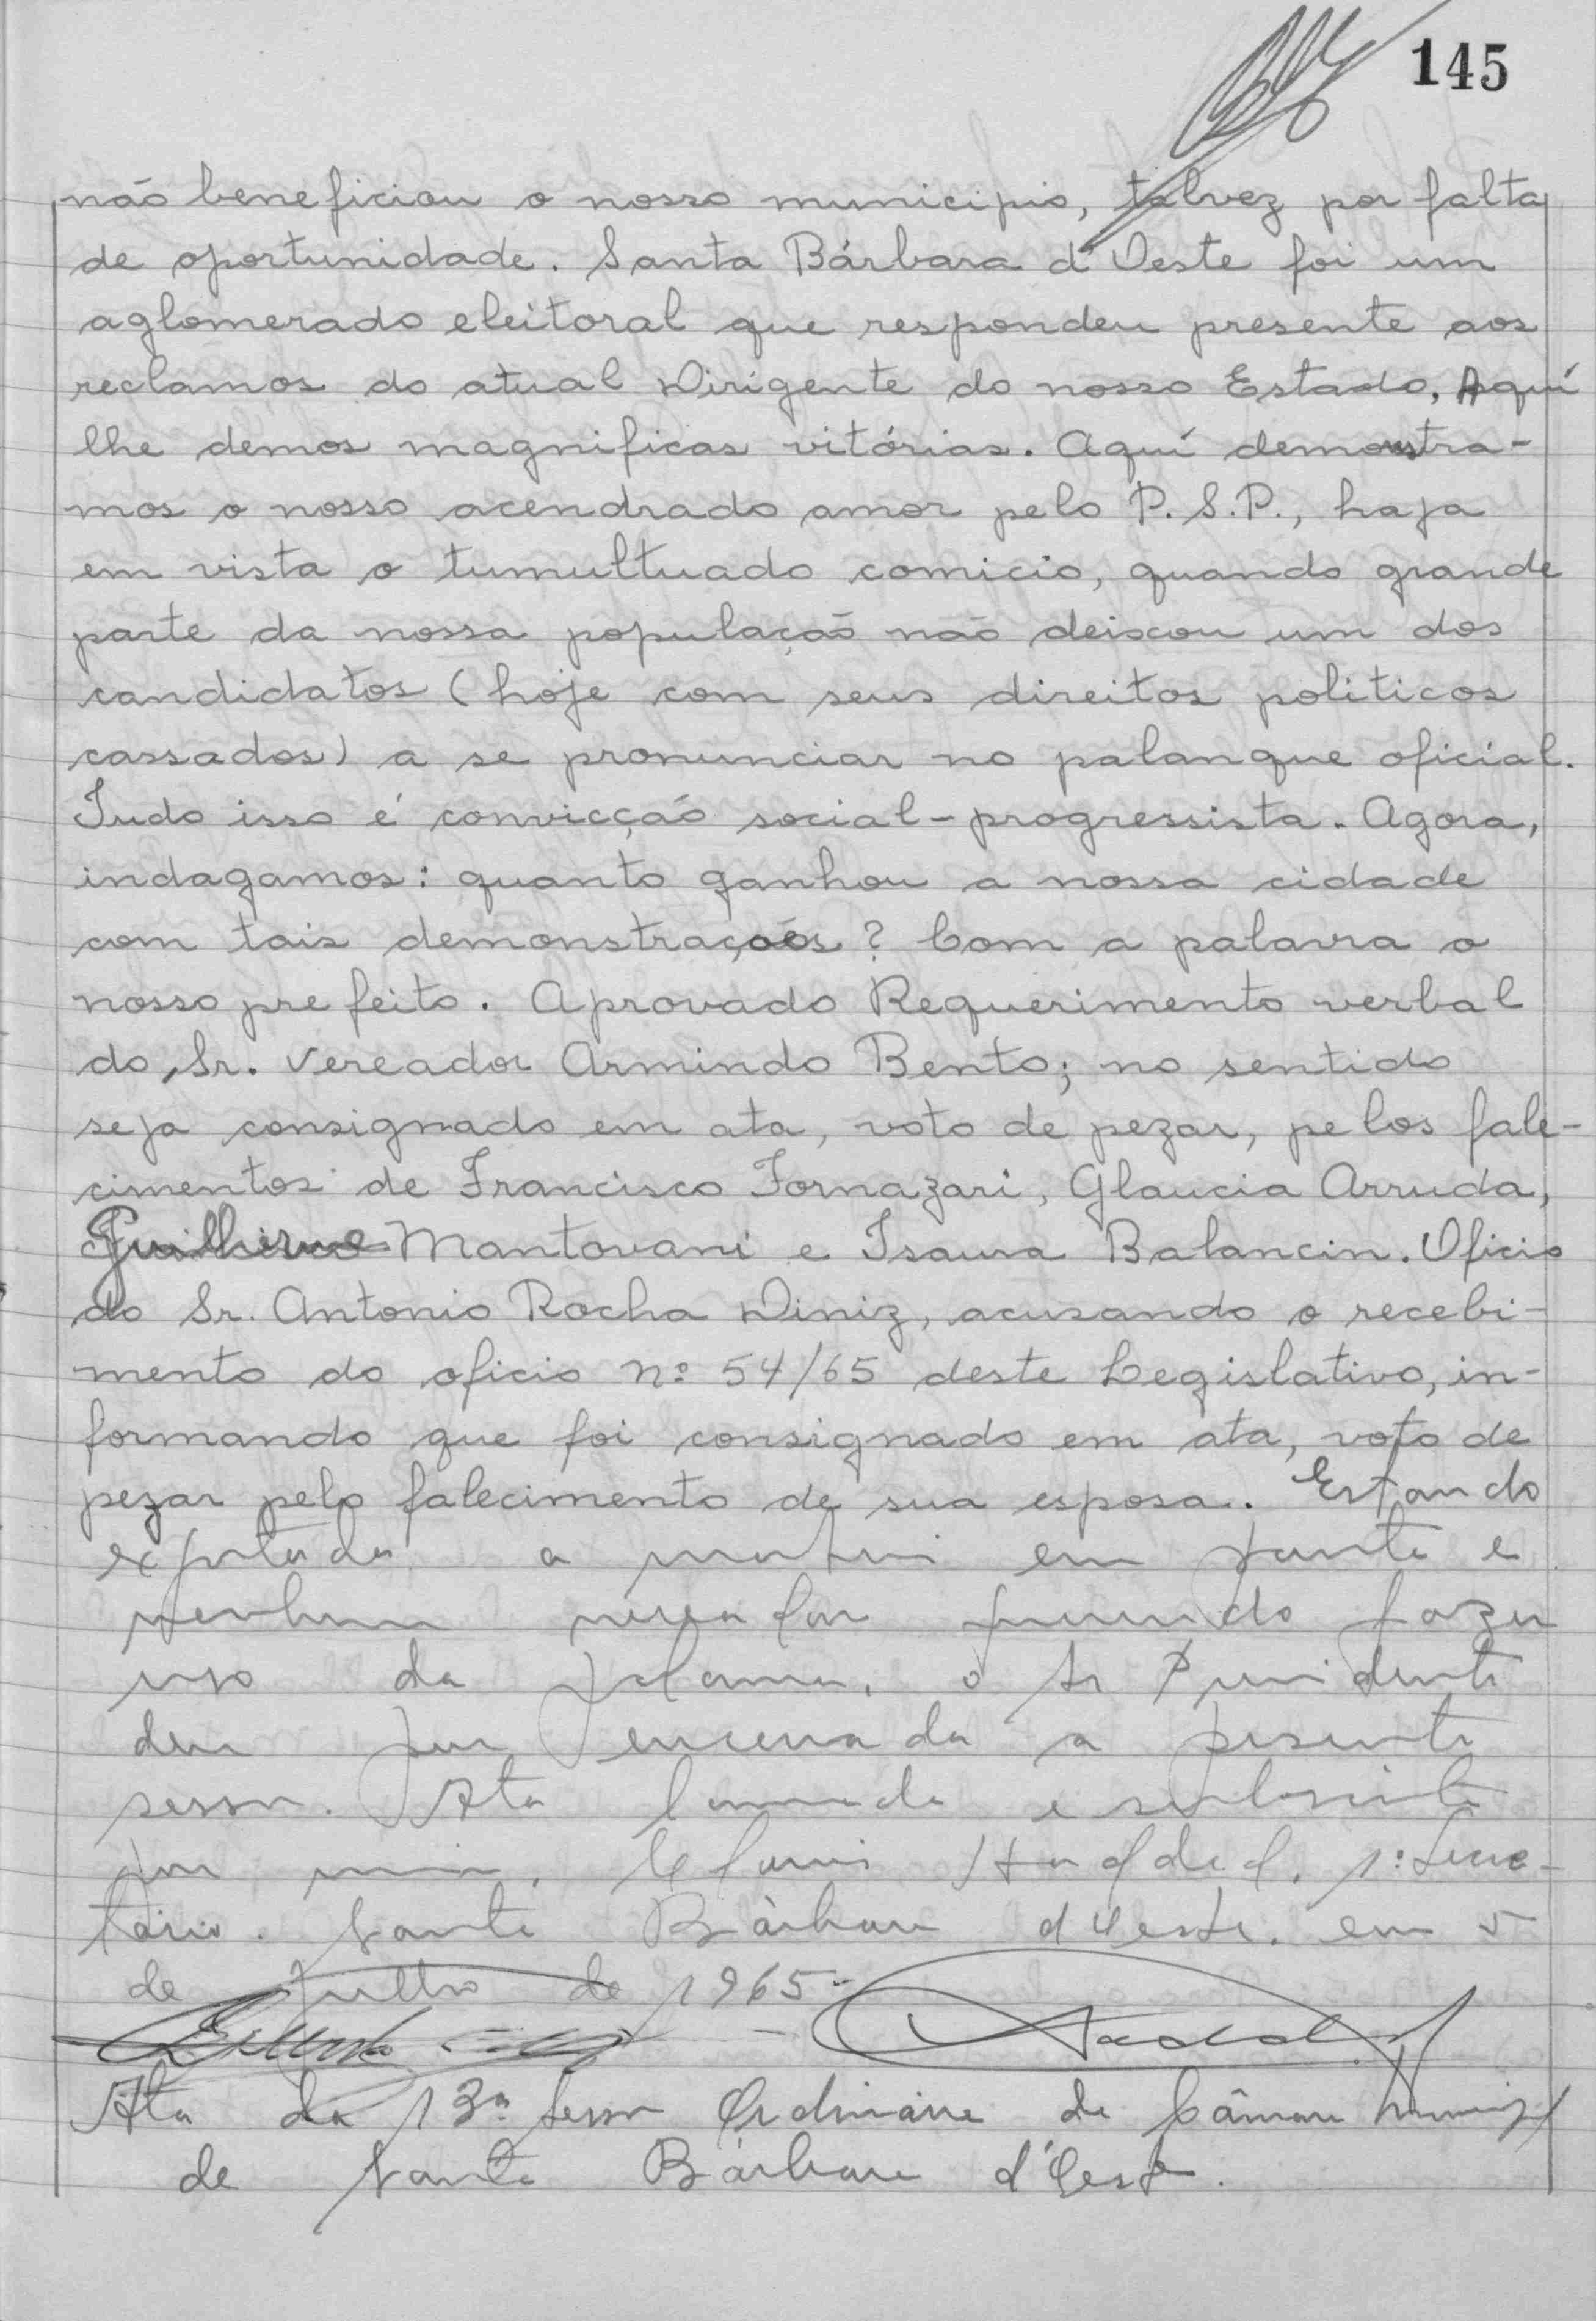 145
não beneficiou o nosso municipio, talvez por falta
de oportunidade. Santa Bárbara d'Oeste foi um
aglomerado eleitoral que respondeu presente aos
reclamos do atual Dirigente do nosso Estado. Aquí
lhe demos magnificas vitórias. Aquí demonstra-
mos o nosso acendrado amor pelo P.S.P., haja
em vista o tumultuado comicio, quando grande
parte da nossa população não deixou um dos
candidatos (hoje com seus direitos politicos
cassados) a se pronunciar no palanque oficial.
Tudo isso é convicção social-progressista. Agora,
indagamos: quanto ganhou a nossa cidade
com tais demonstrações? Com a palavra o
nosso prefeito. Aprovado Requerimento verbal
do Sr. Vereador Armindo Bento; no sentido
seja consignado em ata, voto de pezar, pelos fale-
cimentos de Francisco Fornazari, Glaucia Arruda,
Guilherme Mantovani e Isaura Balancin. Oficio
do Sr. Antonio Rocha Diniz, acusando o recebi-
mento do oficio nº 54/65 deste Legislativo, in-
formando que foi consignado em ata, voto de
pezar pelo falecimento de sua esposa. Estando
esgotada a materia em pauta e
nenhum vereador querendo fazer
uso da palavra, o Sr Presidente
deu por encerrada a presente
sessão. Ata lavrada e subscrita
por mim, Haddad, 1º Secre-
tário. Santa Bárbara d'Oeste, em 5
de Julho de 1965
Ata da 13ª Sessão Ordinária da Câmara Municipal
de Santa Bárbara d'Oeste.